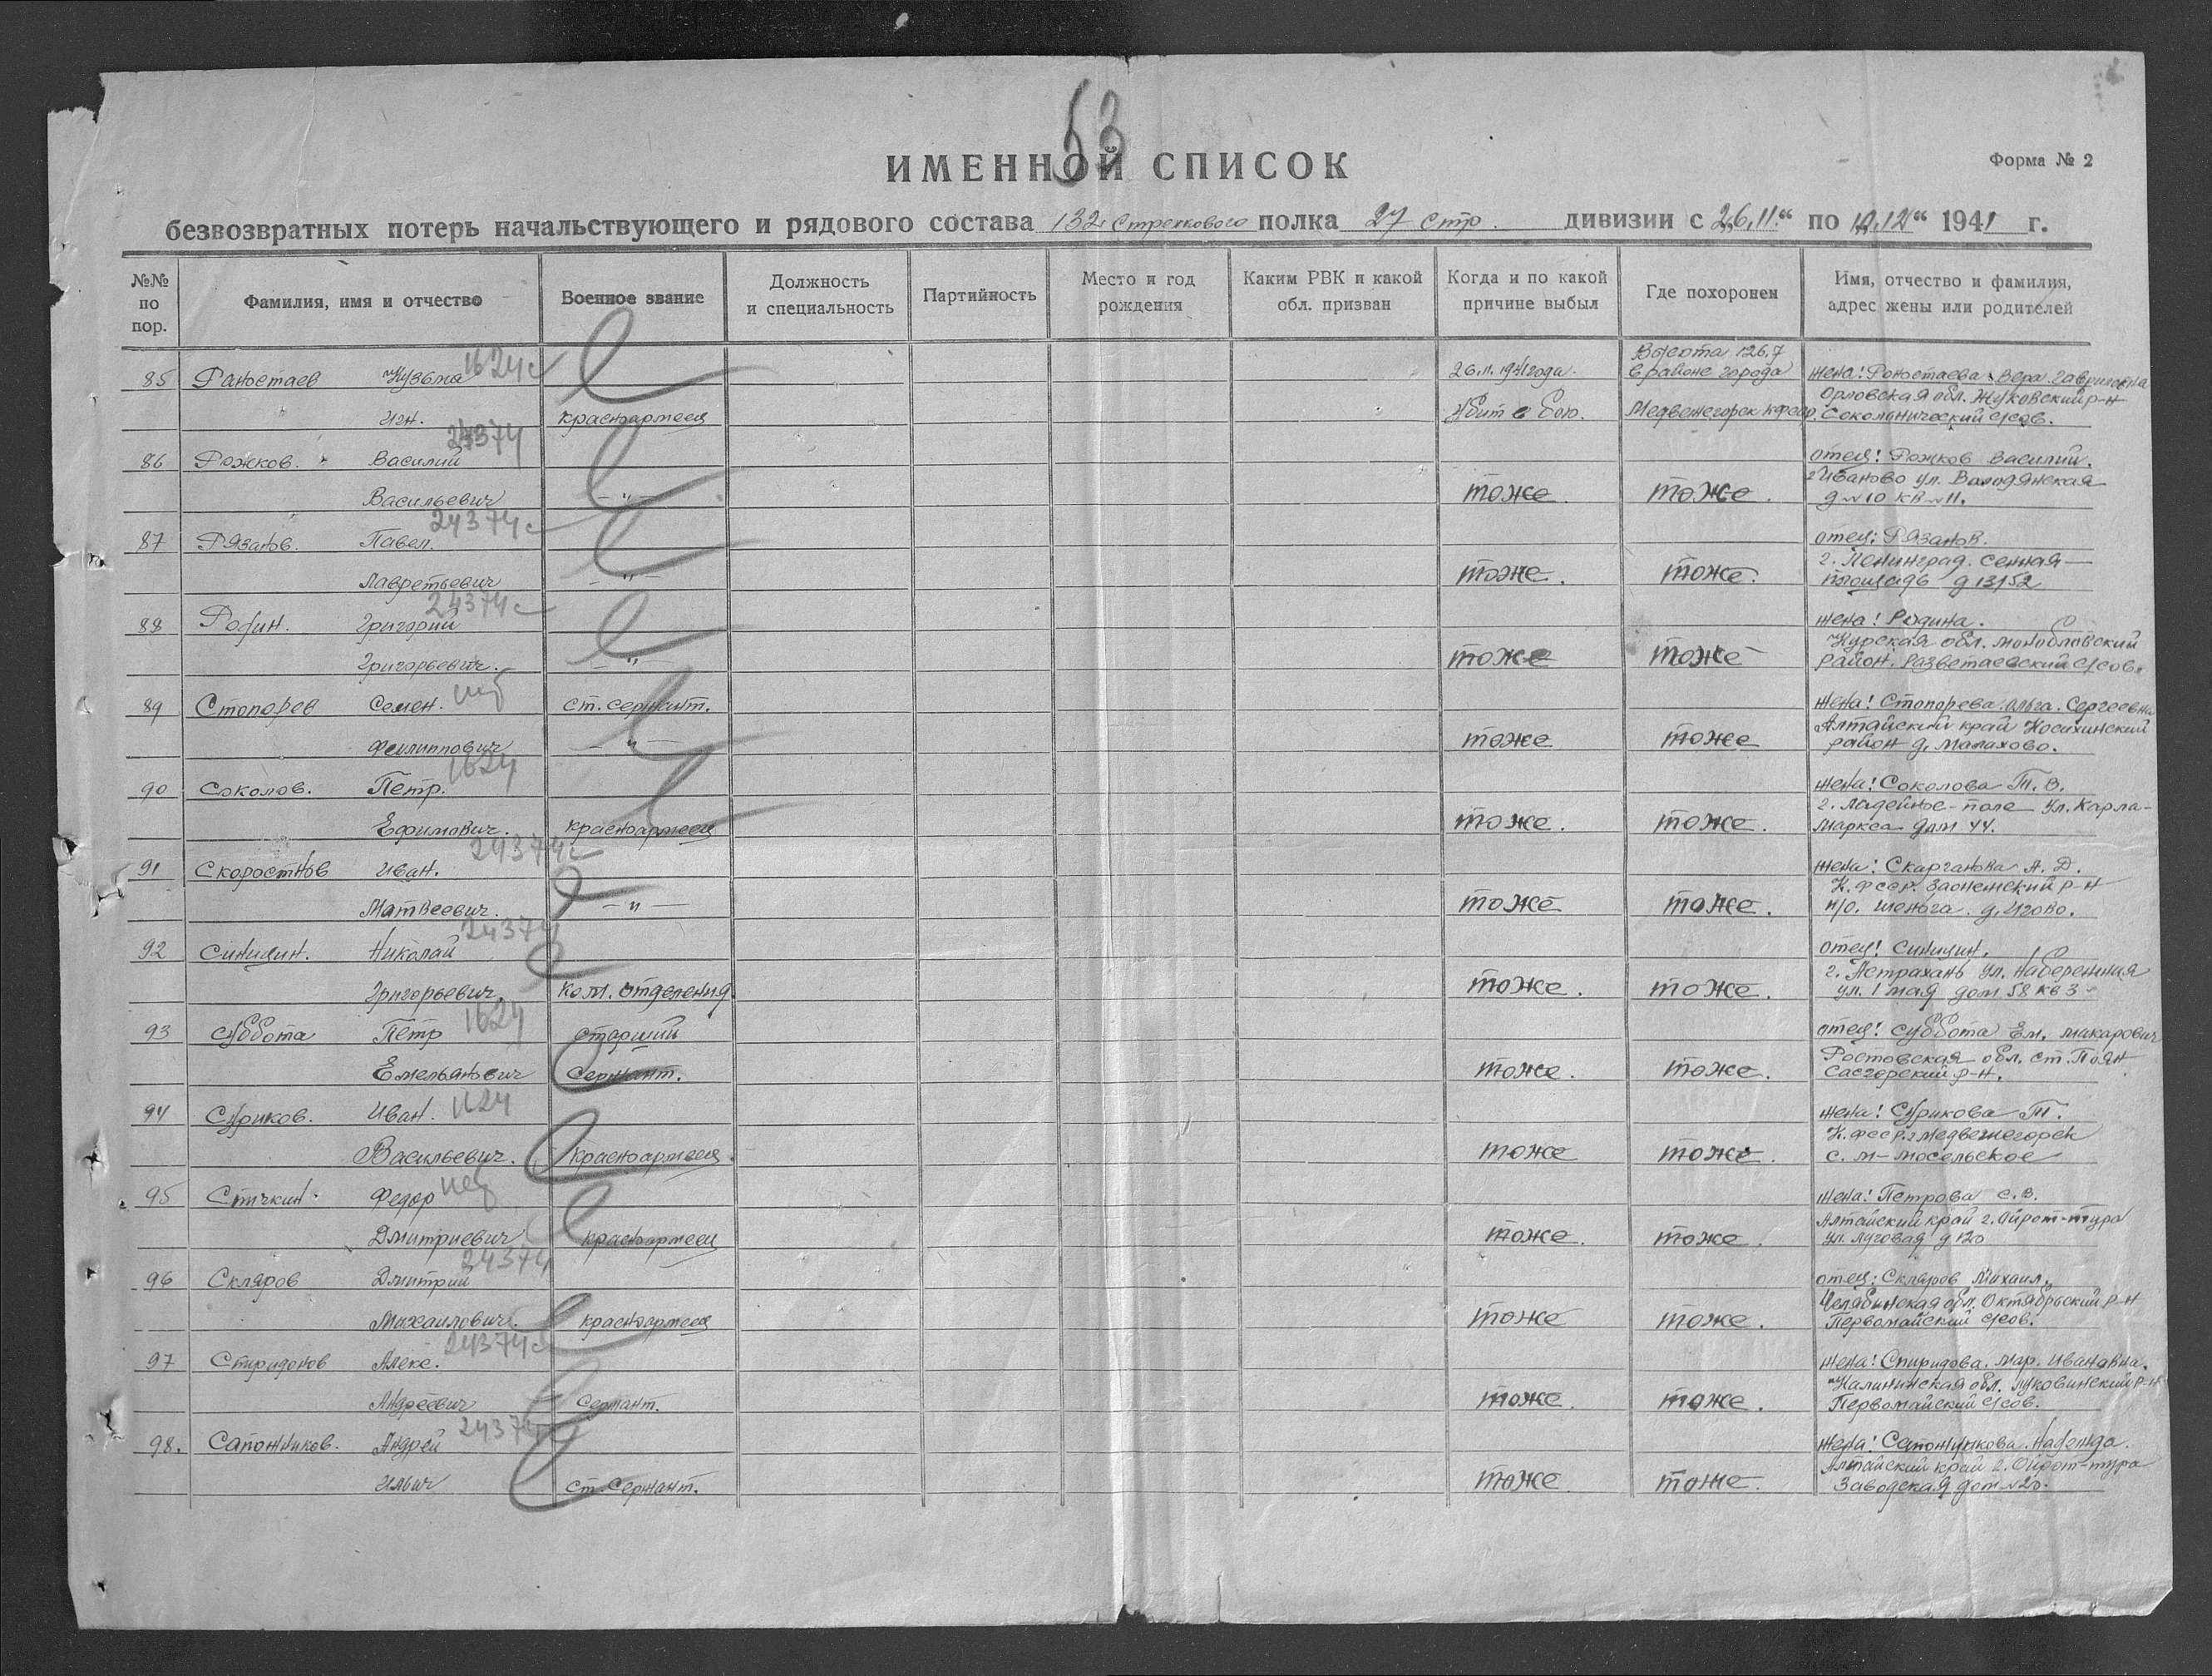 53
ИМЕННОЙ СПИСОК
Форма № 2
безвозвратных потерь начальствующего и рядового состава 132 Стрелкового полка 27 стр. дивизии с 26.11. по 12.12 1941 г.
№№ по пор.
Фамилия, имя и отчество
Военное звание
Должность и специальность
Партийность
Место и год рождения
Каким РВК и какой обл. призван
Когда и по какой причине выбыл
Где похоронен
Имя, отчество и фамилия, адрес жены или родителей
1624с
Высота 126,7
85 Раностаев Кузьма 26.11.1941 года. в районе города жена: Раностаева Вера Гавриловна
Орловская обл. Жуковский р-н
Игн. красноармеец Убит в бою. Медвежегорск Сокольнический с/сов.
24374
86 Рожков. Василий отец: Рожков Василий.
г Иваново ул.
Васильевич — " — тоже. тоже. д №10 кв №11.
24374с
87 Рязанов. Павел. отец: Рязанов.
г. Ленинград. Сенная
Лавретьевич — " — тоже. тоже. площадь д 13/52
24374с
88 Родин. Григорий жена: Родина.
Курская обл.
Григорьевич. — " — тоже тоже район. с/сов.
89 Стопорев Семен. ст. сержант. жена: Стопорева Ольга. Сергеевна
Алтайский край Косихинский
Филиппович — " — тоже тоже район д. Малахово.
1624
90 Соколов. Петр. жена: Соколова Т. В.
г. Ладейное-поле ул. Карла-
Ефимович. красноармеец тоже. тоже. Маркса дом 44.
24374с
91 Скоростнов Иван. жена: А. Д.
К. ф сср. Заонежский р-н
Матвеевич. — " — тоже тоже. п/о. д.
24374
92 Синицин. Николай отец: Синицин.
г. Астрахань ул. Набережная
Григорьевич. ком. отделения. тоже. тоже. ул. 1 мая дом 58 кв 3
1624
93 Суббота Петр старший отец: Суббота Ем. Макарович
Ростовская обл. ст.
Емельянович Сержант. тоже. тоже. р-н.
94 Суриков. Иван. 1624 жена: Сурикова Т.
К. фсср. г Медвежегорск
Васильевич. красноармеец. тоже тоже. с. м-мосельское
95 Федор жена: Петрова С. В.
Алтайский край г. Ойрот-тура
Дмитриевич красноармеец тоже. тоже. ул. Луговая д 120
24374
96 Скляров Дмитрий отец: Скляров Михаил.
Челябинская обл. Октябрьский р-н
Михаилович. красноармеец тоже тоже. Первомайский с/сов.
24374с
97 Спиридонов Алекс. жена: Спиридова. Мар. Ивановна.
Калининская обл. р-н
Андреевич Сержант. тоже. тоже. Первомайский с/сов.
24374
98. Сапожников. Андрей жена: Сапожникова Надежда.
Алтайский край г. Ойрот-тура
Ильич ст. Сержант. тоже тоже. Заводская дом №20.